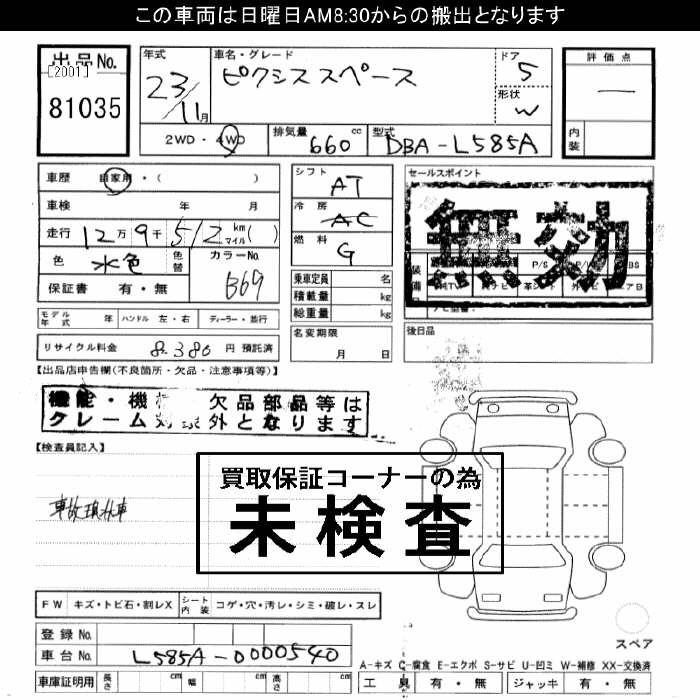 この車両は日曜日AM8:30からの搬出となります
出品No.
[2001]
81035
年式
23/11月
車名・グレード
ピクシススペース
ドア
5
形状
W
評価点
―
内装
2WD・4WD
排気量
660cc
型式
DBA-L585A
車歴 自家用・( )
車検 年 月
走行 12万9千512 km マイル( )
色 水色 色替
カラーNo.
B69
保証書 有・無
シフト AT
冷房 AC
燃料 G
乗車定員 名
積載量 kg
総重量 kg
名変期限
月 日
セールスポイント
無効
装備
P/S
P/W
革シート
エアB
ナビ型番:
後日品
モデル年式 年 ハンドル 左・右 ディーラー・並行
リサイクル料金 8,380 円 預託済
【出品店申告欄(不良箇所・欠品・注意事項等)】
機能・機 欠品部品等は
クレーム対象外となります
【検査員記入】
買取保証コーナーの為
未検査
事故現状車
FW キズ・トビ石・割レX シート内装 コゲ・穴・汚レ・シミ・破レ・スレ
登録No.
車台No. L585A-0000540
車庫証明用 長さ cm 幅 cm 高さ cm
スペア
A-キズ C-腐食 E-エクボ S-サビ U-凹ミ W-補修 XX-交換済
工具 有・無 ジャッキ 有・無